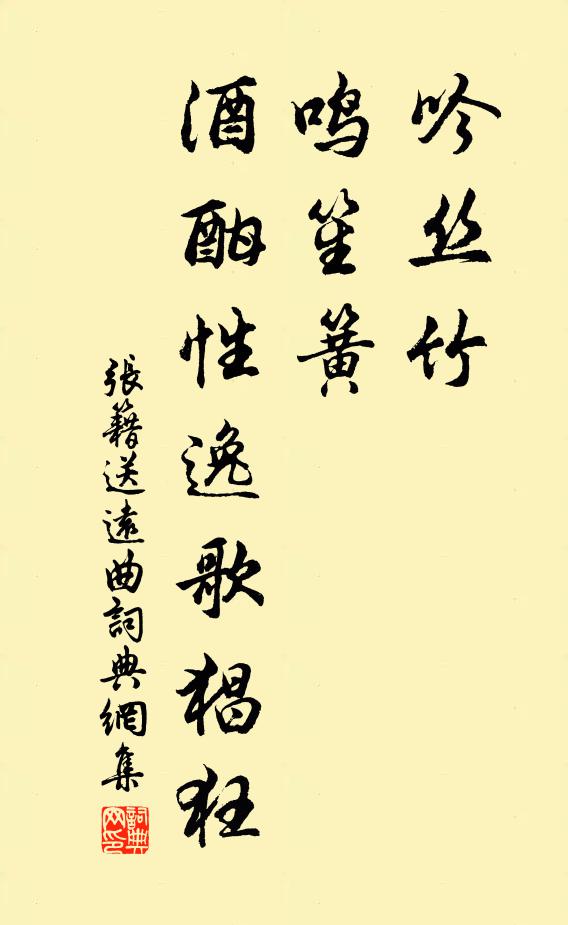 吟丝竹
鸣笙簧
酒酣性逸歌猖狂
張籍送遠曲詞典網集
詞典网印